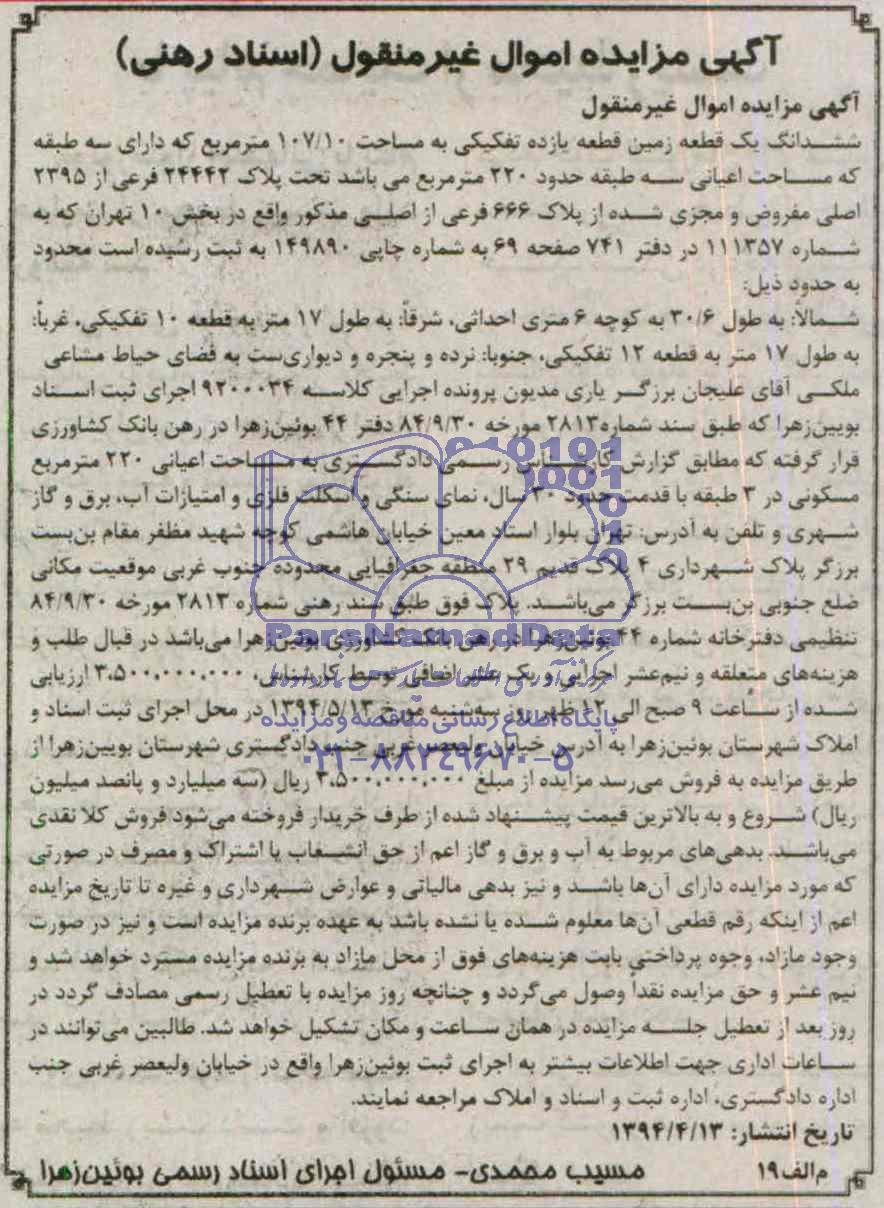 آگهی مزایده اموال غیرمنقول (اسناد رهنی)
آگهی مزایده اموال غیرمنقول
ششدانگ یک قطعه زمین قطعه یازده تفکیکی به مساحت ۱۰۷/۱۰ مترمربع که دارای سه طبقه
که مساحت اعیانی سه طبقه حدود ۲۲۰ مترمربع می باشد تحت پلاک ۲۴۴۴۲ فرعی از ۲۳۹۵
اصلی مفروض و مجزی شده از پلاک ۶۶۶ فرعی از اصلی مذکور واقع در بخش ۱۰ تهران که به
شماره ۱۱۱۳۵۷ در دفتر ۷۴۱ صفحه ۶۹ به شماره چاپی ۱۴۹۸۹۰ به ثبت رشیده است محدود
به حدود ذیل:
شمالاً: به طول ۳۰/۶ به کوچه ۶ متری احداثی، شرقاً: به طول ۱۷ متر به قطعه ۱۰ تفکیکی، غرباً:
به طول ۱۷ متر به قطعه ۱۲ تفکیکی، جنوبا: نرده و پنجره و دیواری‌ست به فضای حیاط مشاعی
ملکی آقای علیجان برزگر یاری مدیون پرونده اجرایی کلاسه ۹۲۰۰۰۳۴ اجرای ثبت اسناد
بویین‌زهرا که طبق سند شماره ۲۸۱۳ مورخه ۸۴/۹/۳۰ دفتر ۴۴ بوئین‌زهرا در رهن بانک کشاورزی
قرار گرفته که مطابق گزارش کارشناس رسمی دادگستری به مساحت اعیانی ۲۲۰ مترمربع
مسکونی در ۳ طبقه با قدمت حدود ۳۰ سال، نمای سنگی و اسکلت فلزی و امتیازات آب، برق و گاز
شهری و تلفن به آدرس: تهران بلوار استاد معین خیابان هاشمی کوچه شهید مظفر مقام بن‌بست
برزگر پلاک شهرداری ۴ پلاک قدیم ۲۹ منطقه جغرافیایی محدوده جنوب غربی موقعیت مکانی
ضلع جنوبی بن‌بست برزگر می‌باشد. پلاک فوق طبق سند رهنی شماره ۲۸۱۳ مورخه ۸۴/۹/۳۰
ParsNamadData
تنظیمی دفترخانه شماره ۴۴ بوئین‌زهرا در رهن بانک کشاورزی بوئین‌زهرا می‌باشد در قبال طلب و
هزینه‌های متعلقه و نیم‌عشر اجرایی و یک عشر اضافی توسط کارشناس، ۳،۵۰۰،۰۰۰،۰۰۰ ارزیابی
شده از ساعت ۹ صبح الی ۱۲ ظهر روز سه‌شنبه مورخ ۱۳۹۴/۵/۱۳ در محل اجرای ثبت اسناد و
پایگاه اطلاع رسانی مناقصه و مزایده
املاک شهرستان بوئین‌زهرا به آدرس خیابان ولیعصر غربی جنب دادگستری شهرستان بویین‌زهرا از
۰۲۱-۸۸۳۴۹۶۷۰-۵
طریق مزایده به فروش می‌رسد مزایده از مبلغ ۳،۵۰۰،۰۰۰،۰۰۰ ریال (سه میلیارد و پانصد میلیون
ریال) شروع و به بالاترین قیمت پیشنهاد شده از طرف خریدار فروخته می‌شود فروش کلا نقدی
می‌باشد. بدهی‌های مربوط به آب و برق و گاز اعم از حق انشعاب یا اشتراک و مصرف در صورتی
که مورد مزایده دارای آن‌ها باشد و نیز بدهی مالیاتی و عوارض شهرداری و غیره تا تاریخ مزایده
اعم از اینکه رقم قطعی آن‌ها معلوم شده یا نشده باشد به عهده برنده مزایده است و نیز در صورت
وجود مازاد، وجوه پرداختی بابت هزینه‌های فوق از محل مازاد به برنده مزایده مسترد خواهد شد و
نیم عشر و حق مزایده نقداً وصول می‌گردد و چنانچه روز مزایده با تعطیل رسمی مصادف گردد در
روز بعد از تعطیل جلسه مزایده در همان ساعت و مکان تشکیل خواهد شد. طالبین می‌توانند در
ساعات اداری جهت اطلاعات بیشتر به اجرای ثبت بوئین‌زهرا واقع در خیابان ولیعصر غربی جنب
اداره دادگستری، اداره ثبت و اسناد و املاک مراجعه نمایند.
تاریخ انتشار: ۱۳۹۴/۴/۱۳
م الف ۱۹
مسیب محمدی- مسئول اجرای اسناد رسمی بوئین‌زهرا